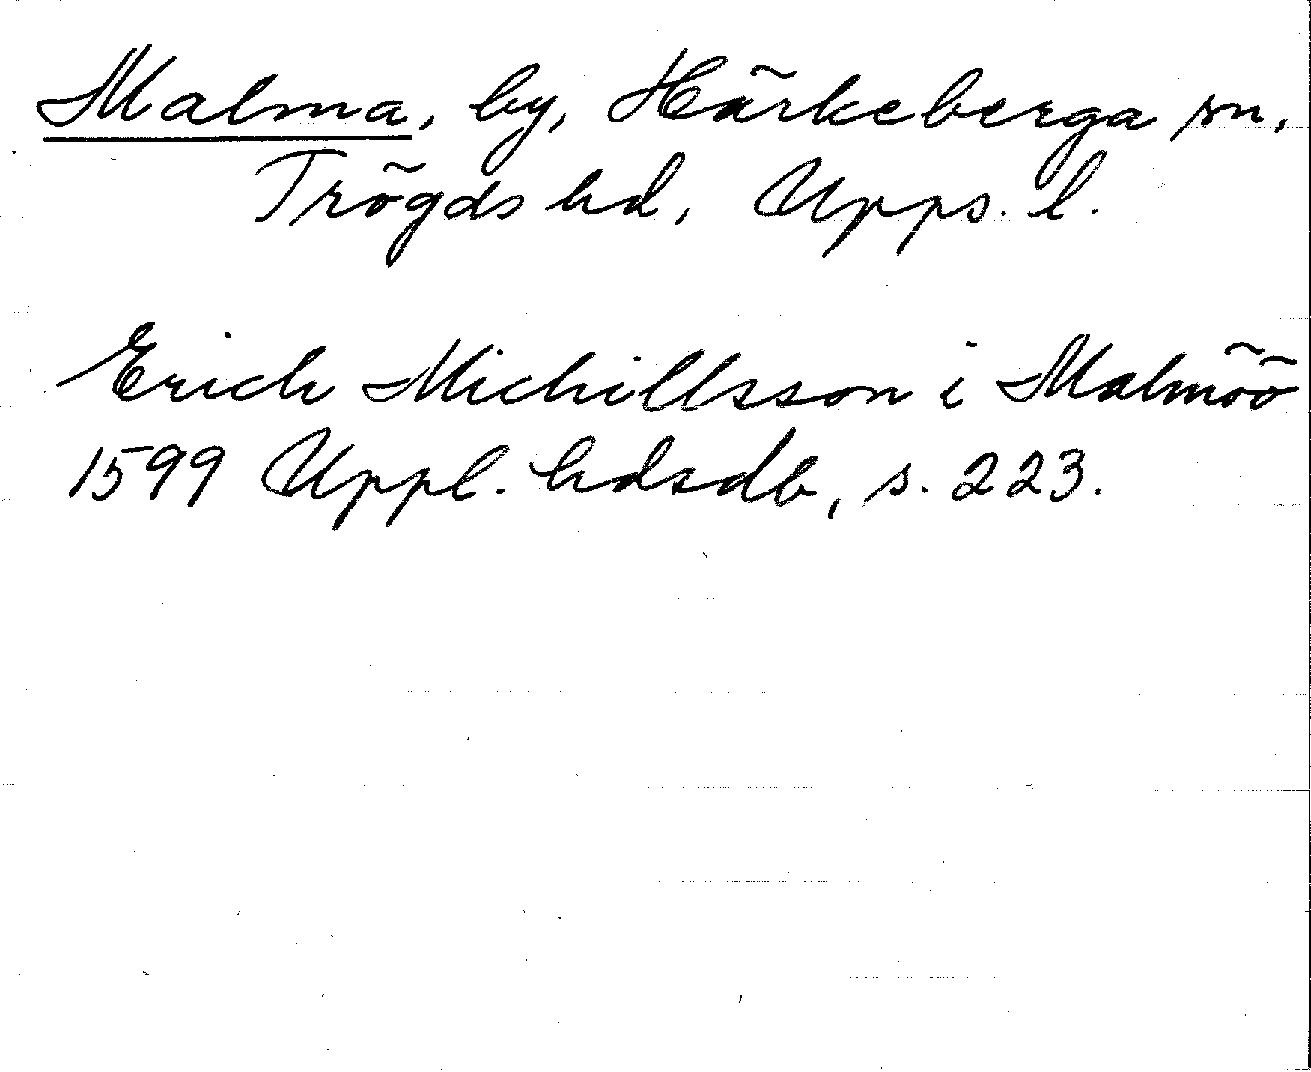 Malma, by, Härkeberga sn,
Trögds hd, Upps. l.
Erich Michillsson i Malmöö
1599 Uppl. hdsdb, s. 223.